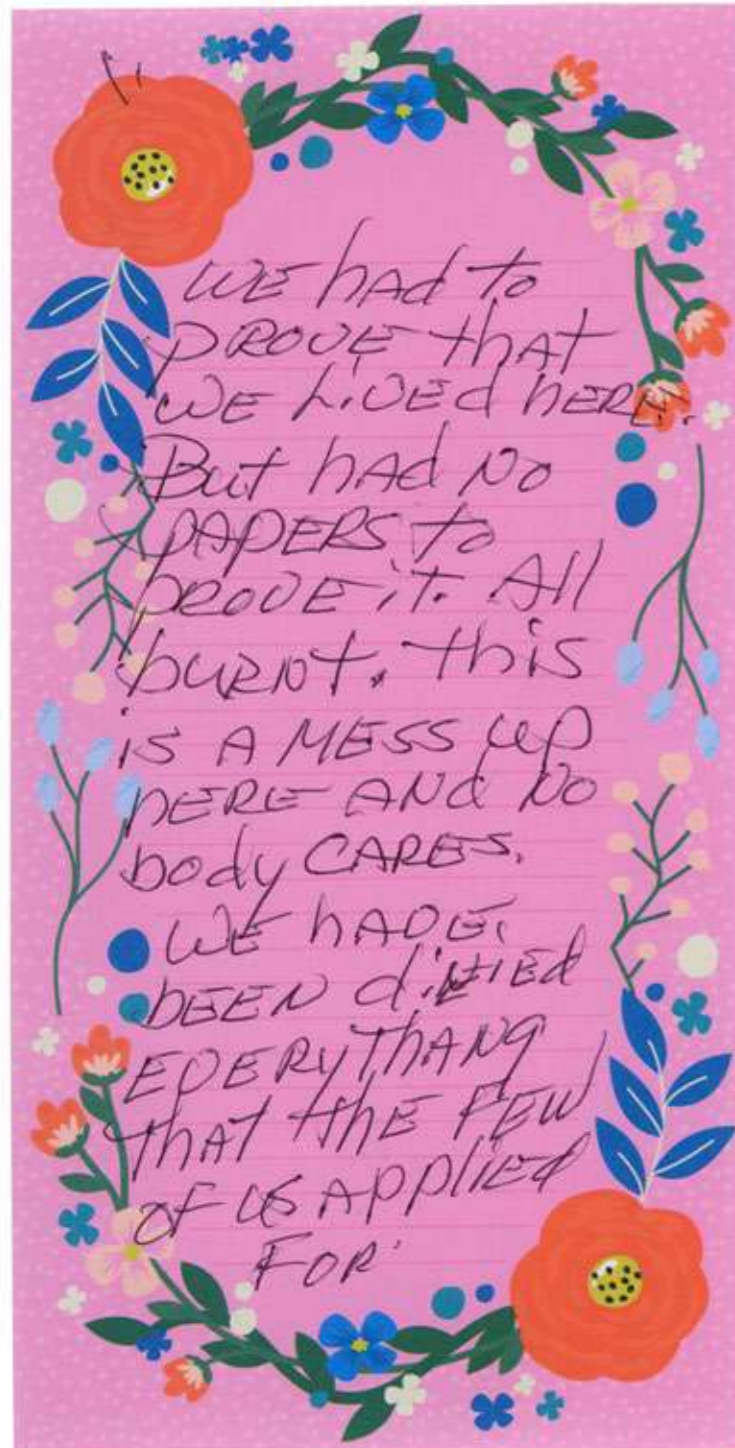 WE hAd to
PROVE thAt
WE LiVEd hERE.
But hAd NO
PAPERS to
PROVE it. All
buRNt. this
is A MESS up
hERE ANd NO
body CARES.
WE hAVE
bEEN diNiEd
EVERythANg
thAt thE FEW
OF US APPliEd
FOR.